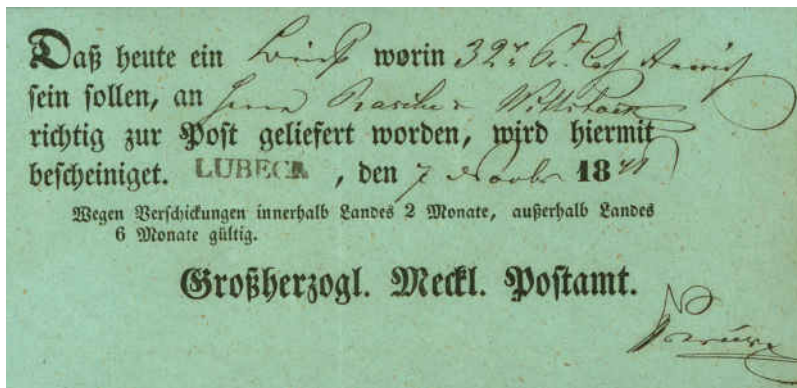 Daß heute ein Brief worin 32 r Pr. Ct.
sein sollen, an Herrn Rasche Wittstock
richtig zur Post geliefert worden, wird hiermit
bescheiniget. LUBECK, den 7 Novbr 1841
Wegen Verschickungen innerhalb Landes 2 Monate, außerhalb Landes
6 Monate gültig.
Großherzogl. Meckl. Postamt.